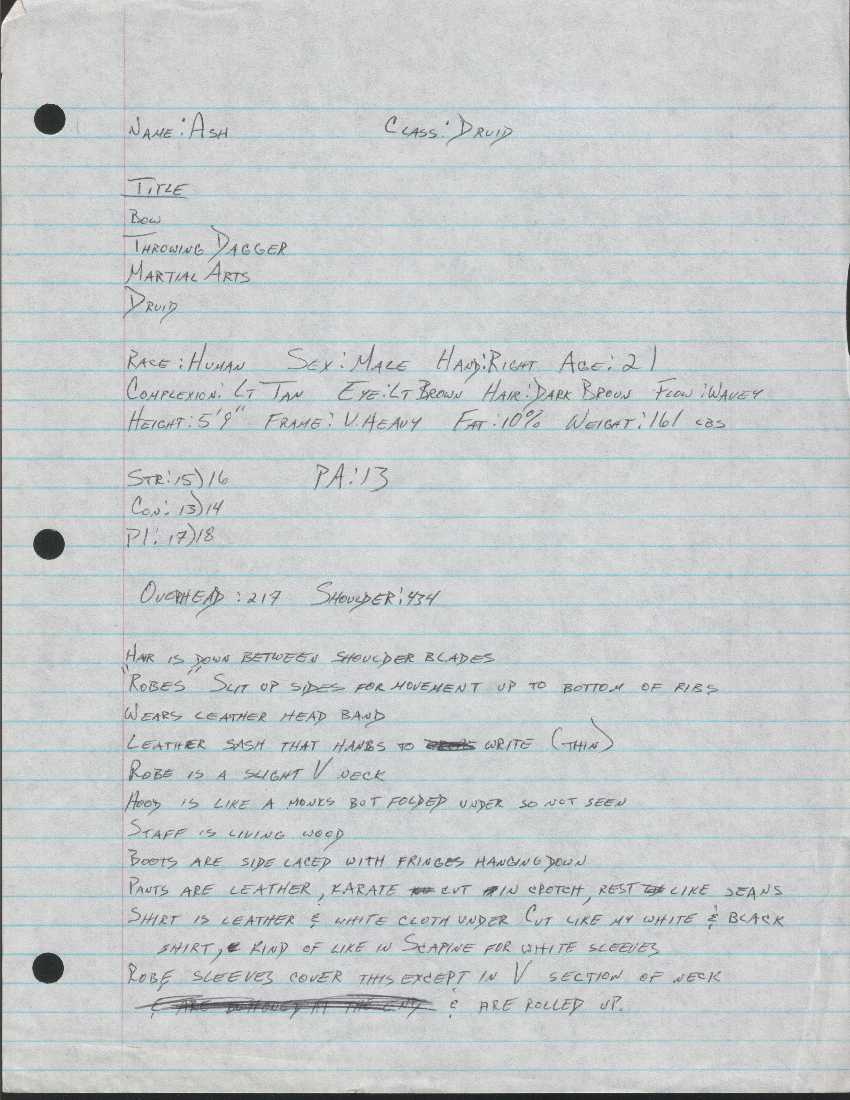 Name: Ash Class: Druid
Title
Bow
Throwing Dagger
Martial Arts
Druid
Race: Human Sex: Male Hand: Right Age: 21
Complexion: Lt Tan Eye: Lt Brown Hair: Dark Brown Flow: Wavey
Height: 5'9" Frame: V. Heavy Fat: 10% Weight: 161 LBS
Str: 15) 16 PA: 13
Con: 13) 14
PI: 17) 18
Overhead: 217 Shoulder: 434
Hair is down between shoulder blades
"Robes" Slit up sides for movement up to bottom of ribs
Wears leather head band
Leather sash that hangs to write (thin)
Robe is a slight V neck
Hood is like a monks but folded under so not seen
Staff is living wood
Boots are side laced with fringes hanging down
Pants are leather, karate cut in crotch, rest like jeans
Shirt is leather & white cloth under Cut like my white & black
shirt, kind of like in Scapine for white sleeves
Robe sleeves cover this except in V section of neck
& are buttoned at the end & are rolled up.